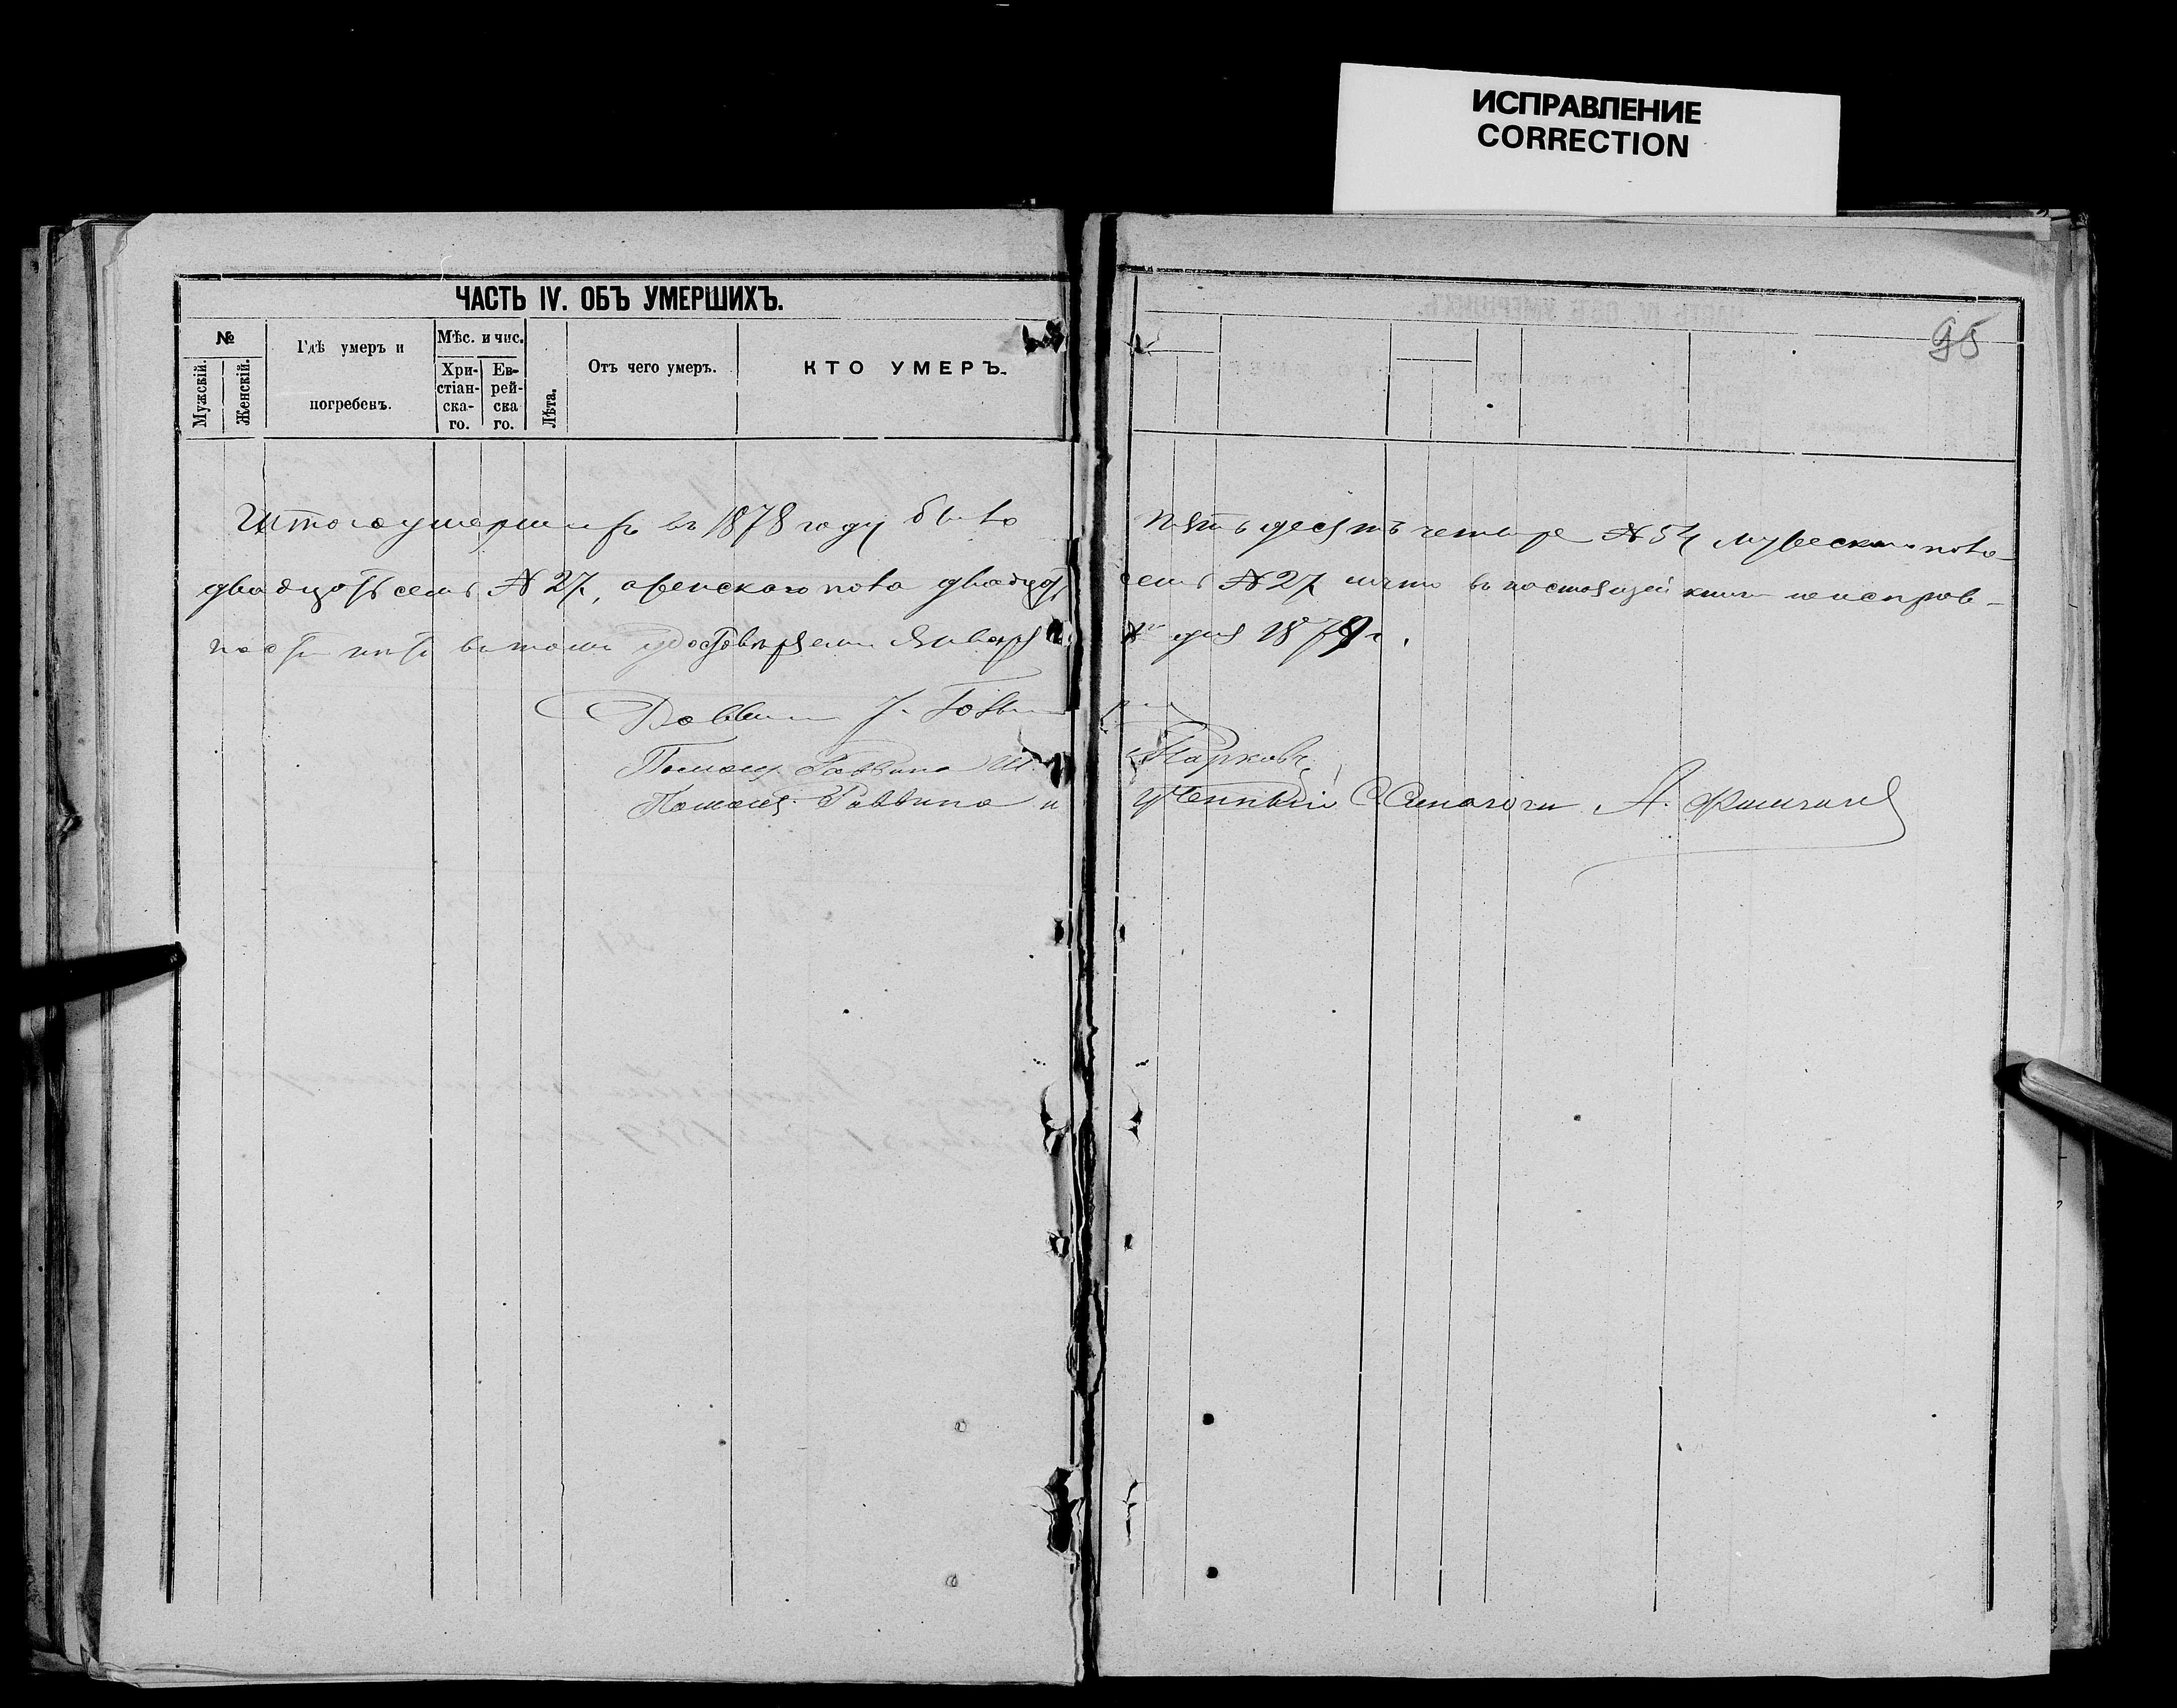 ИСПРАВЛЕНИЕ
CORRECTION
ЧАСТЬ IV. ОБЪ УМЕРШИХЪ.
№
Мужскій.
Женскій.
Гдѣ умеръ и
погребенъ.
Мѣс. и чис.
Хри-
стіан-
ска-
го.
Ев-
рей-
ска
го.
Лѣта.
Отъ чего умеръ.
КТО УМЕРЪ.
95
Итого умершихъ въ 1878 году было пятьдесятъ четыре № 54 мужескаго пола
двадцать семь № 27, женскаго пола двадцать семь № 27 что въ настоящей книги неисправ-
ностей нѣтъ въ томъ удостовѣряемъ Января дня 1879 г.
Раввинъ
Помощ. Раввина Ш. Парковъ
Помощ. Раввина и ученный Синагоги А.